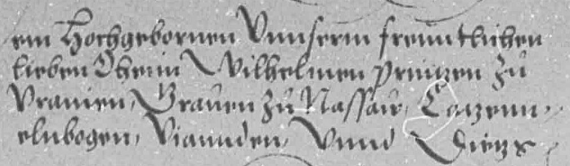 em Hochgebornen Vnnserm freuntlichen
lieben Oheim Wilhelmen Printzen zů
Vranien, Grauen zů Nassaw, Catzenn,,
elnbogen, Viannden, Vnnd Dietz